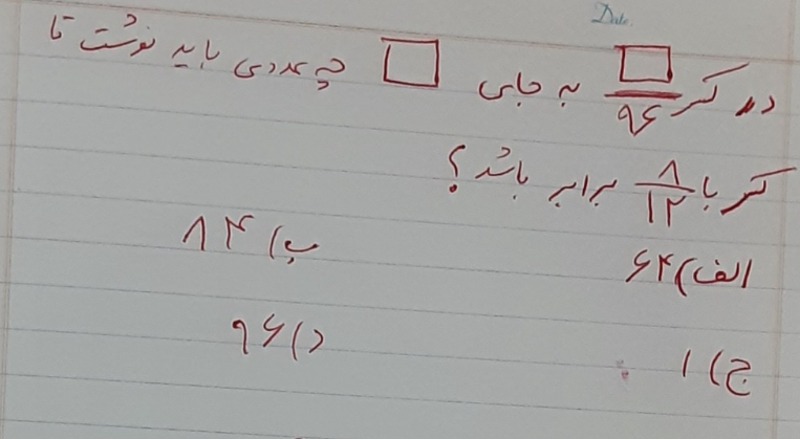 Date.
در کسر □/۹۶ به جای □ چه عددی باید نوشت تا
کسر با ۸/۱۲ برابر باشد؟
الف) ۶۴ ب) ۸۴
ج) ۱ د) ۹۶